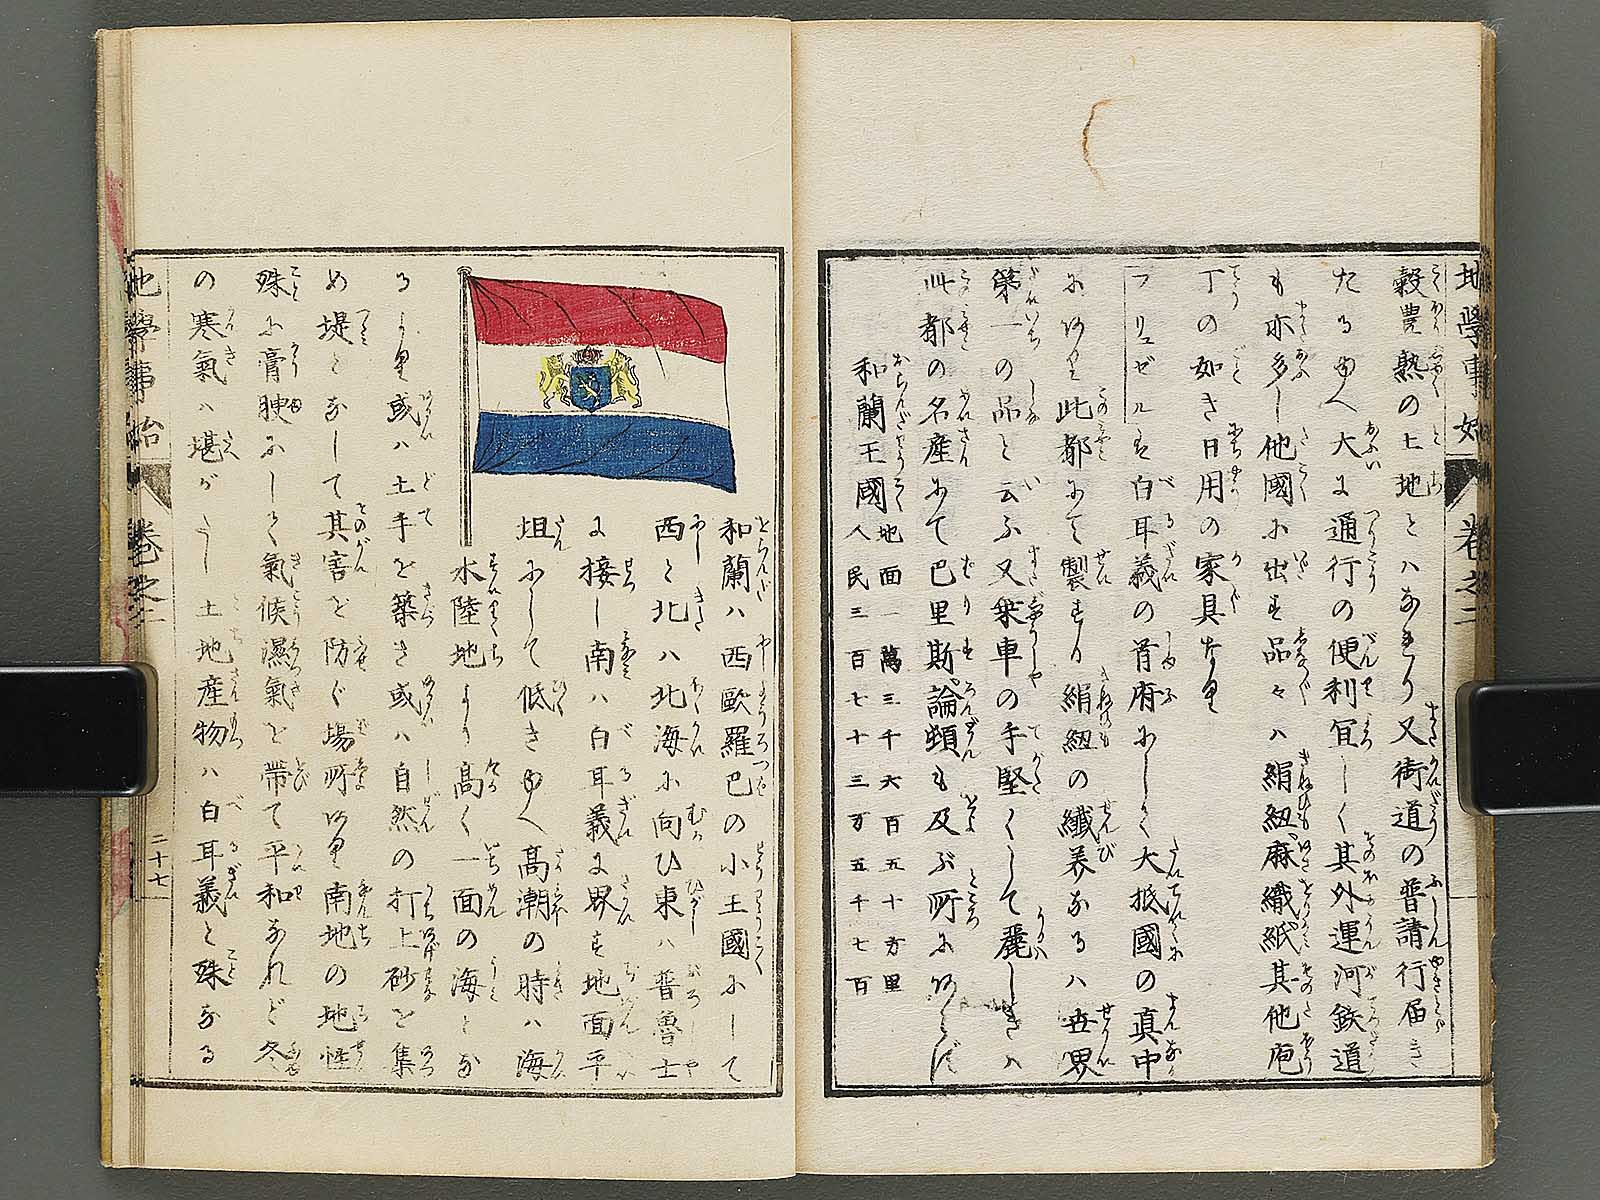 地學事始
卷之二
穀豊熟の土地とハなれり又街道の普請行届き
たるゆへ大に通行の便利宜しく其外運河鉄道
も亦多し他國に出す品々ハ絹紐麻織紙其他庖
丁の如き日用の家具なり
フリュゼルす白耳義の首府にして大抵國の真中
にあり此都にて製する絹紐の纎美なるハ世界
第一の品と云ふ又乗車の手堅くして麗しきハ
此都の名産にて巴里斯論頓も及ぶ所にあらず
和蘭王國
地面一萬三千六百五十方里
人民三百七十三万五千七百
和蘭ハ西歐羅巴の小王國にして
西と北ハ北海に向ひ東ハ普魯士
に接し南ハ白耳義に界す地面平
坦にして低きゆへ高潮の時ハ海
水陸地より高く一面の海とな
るより或ハ土手を築き或ハ自然の打上砂を集
め堤となして其害を防ぐ場所あり南地の地性
殊に膏腴にして氣候濕氣を帶て平和なれど冬
の寒氣ハ堪がたし土地産物ハ白耳義と殊なる
地學事始
卷之二
二十七